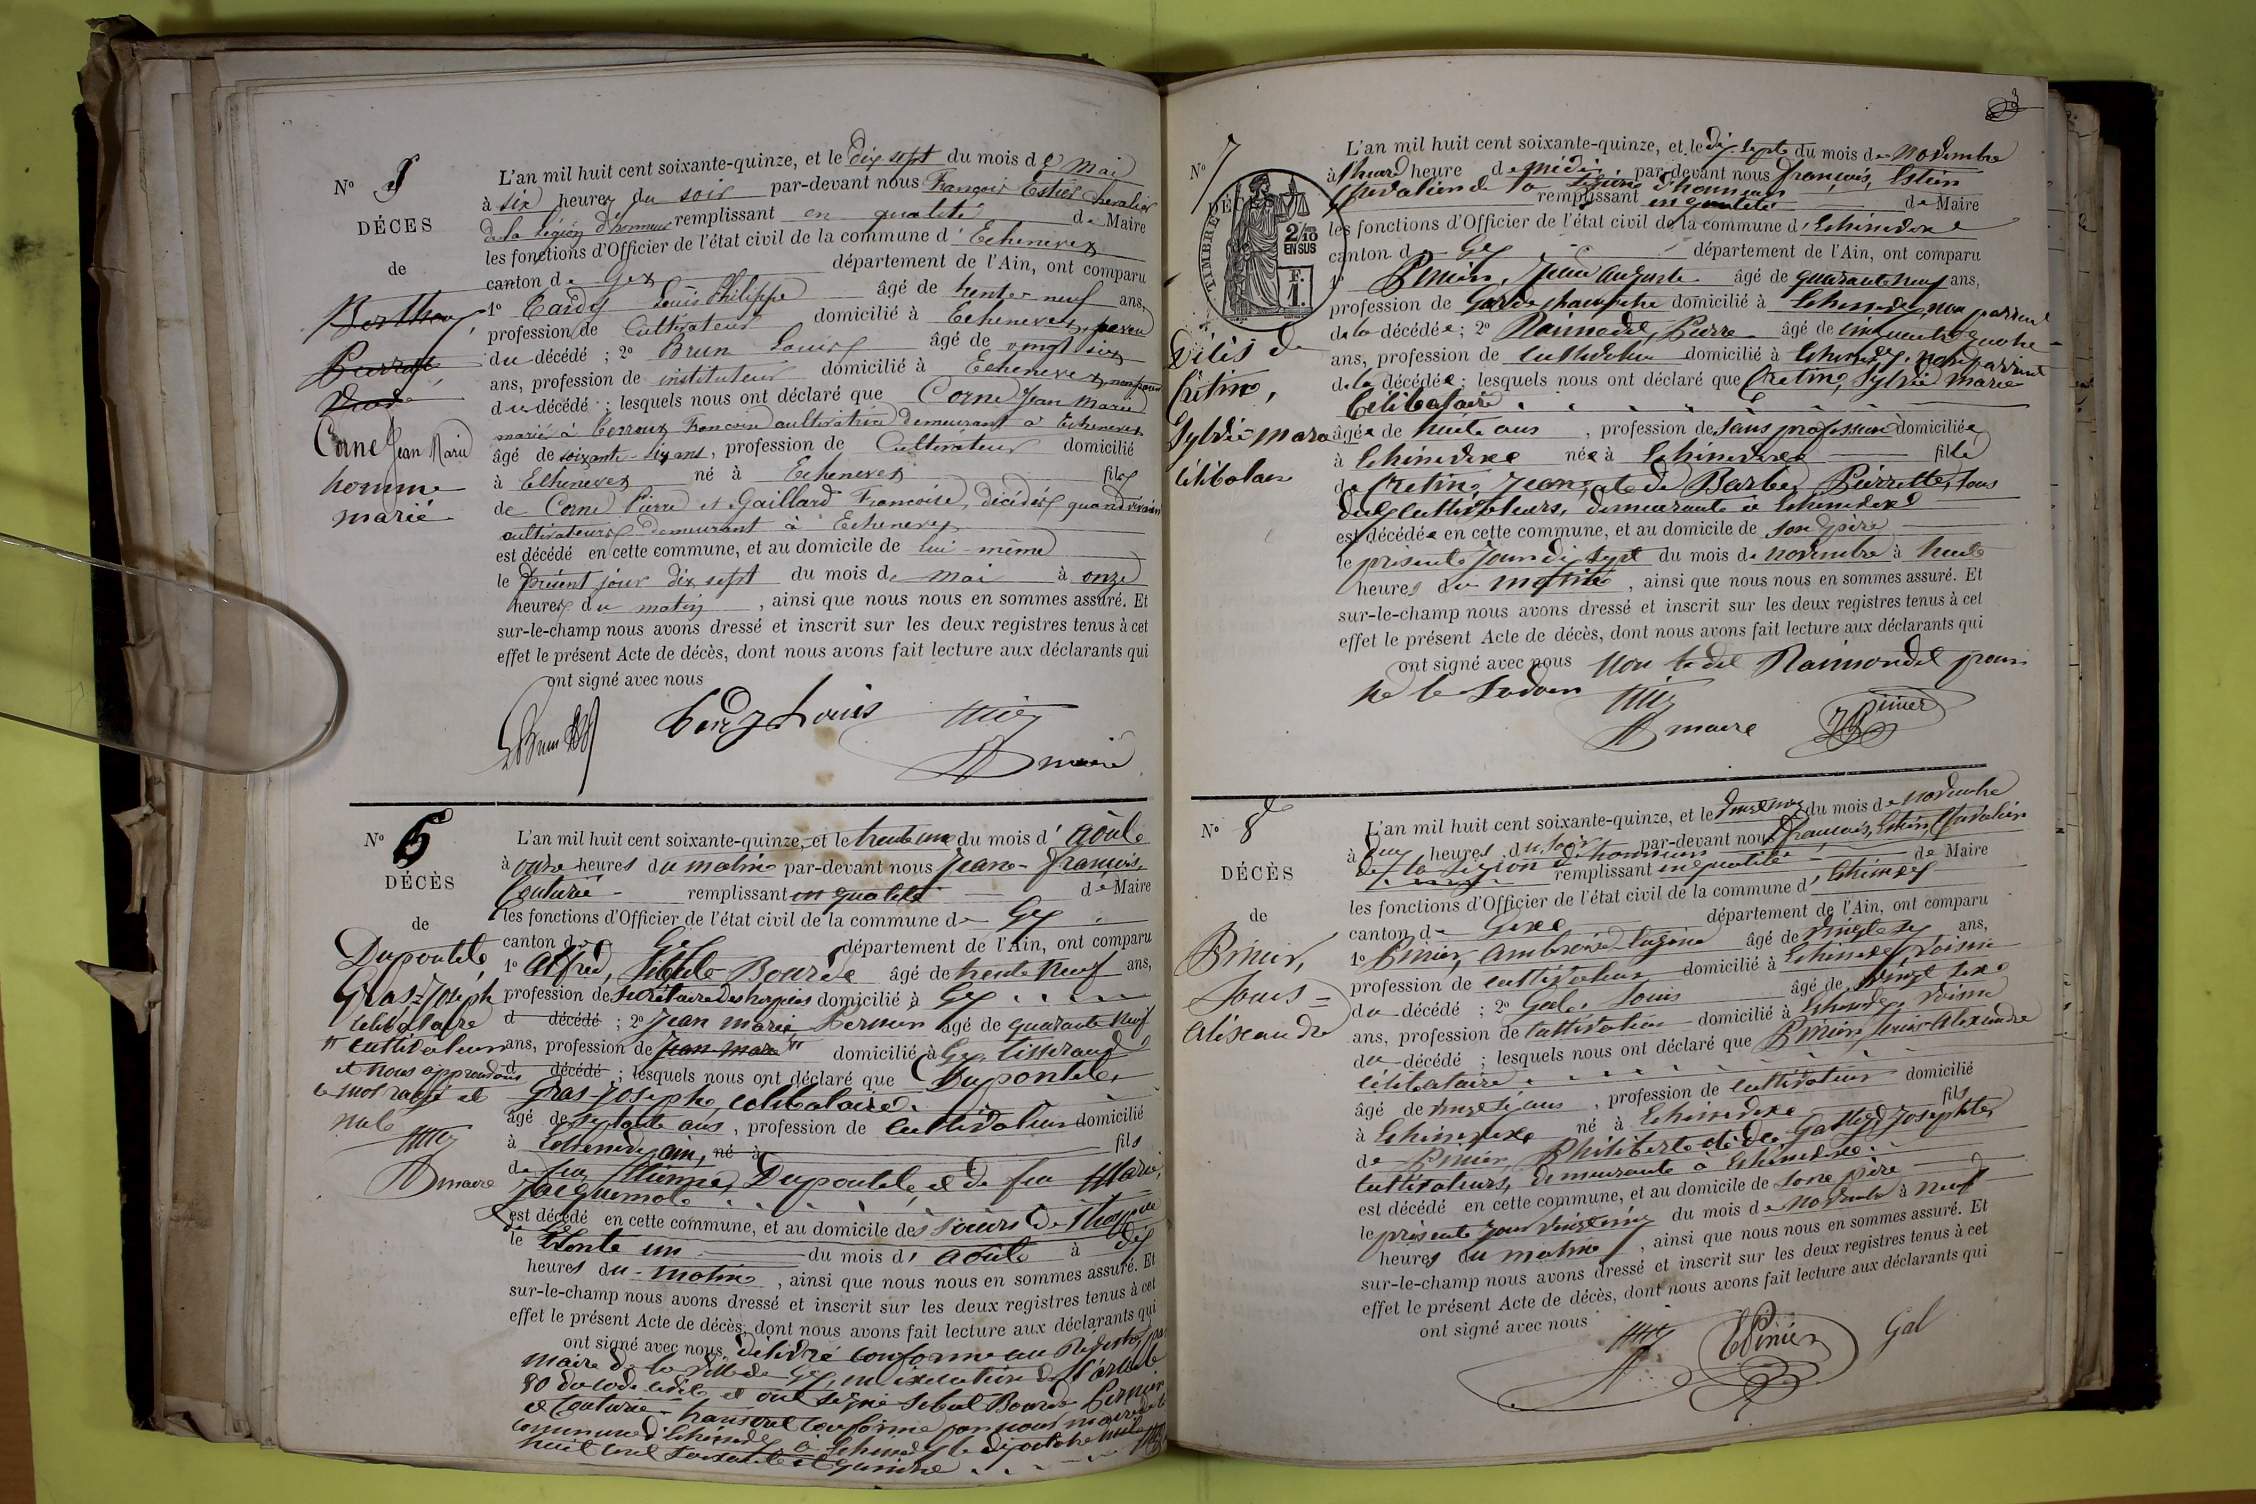 N° 5
DÉCES
de
Berthou
Pierrette
Corne Jean Marie
homme
marié
L'an mil huit cent soixante-quinze, et le dix sept du mois de Mai
à six heures du soir par-devant nous François Estier chevalier
de la Légion d'honneur remplissant en qualité de Maire
les fonctions d'Officier de l'état civil de la commune d'Echenevex
canton de Gex département de l'Ain, ont comparu
1° Tardy Louis Philippe âgé de trente neuf ans,
profession de Cultivateur domicilié à Echenevex, neveu
du décédé ; 2° Brun Louis âgé de vingt six
ans, profession de instituteur domicilié à Echenevex, non parent
du décédé ; lesquels nous ont déclaré que Corne Jean Marie
marié à Françoise cultivatrice demeurant à Echenevex
âgé de soixante-six ans, profession de Cultivateur domicilié
à Echenevex né à Echenevex fils
de Corne Pierre et Gaillard Françoise, décédés quand vivaient
cultivateurs demeurant à Echenevex
est décédé en cette commune, et au domicile de lui-même
le présent jour dix sept du mois de Mai à onze
heures du matin, ainsi que nous nous en sommes assuré. Et
sur-le-champ nous avons dressé et inscrit sur les deux registres tenus à cet
effet le présent Acte de décès, dont nous avons fait lecture aux déclarants qui
ont signé avec nous
LBrun Louis
maire
N° 6
DÉCÈS
de
Dupontet
Gras Joseph
célibataire
" cultivateur
et nous approuvons
le mot rayé et
nul
maire
L'an mil huit cent soixante-quinze, et le trente un du mois d'août
à onze heures du matin par-devant nous Jean-François
Couturié remplissant en qualité de Maire
les fonctions d'Officier de l'état civil de la commune de Gex
canton de Gex département de l'Ain, ont comparu
1° Alfred, Bourde âgé de trente neuf ans,
profession de secrétaire des hospices domicilié à Gex
d décédé ; 2° Jean marie Pernin âgé de quarante neuf
ans, profession de Jean marie " domicilié à Gex, tisserand
d décédé ; lesquels nous ont déclaré que Dupontet
Gras Joseph, célibataire
âgé de septante ans, profession de cultivateur domicilié
à Echenevex, ain, né à fils
de feu Etienne, Dupontet, et de feu Marie,
Jacquemot
est décédé en cette commune, et au domicile des soeurs de l'hospice
le trente un du mois d'août à dix
heures du matin, ainsi que nous nous en sommes assuré. Et
sur-le-champ nous avons dressé et inscrit sur les deux registres tenus à cet
effet le présent Acte de décès, dont nous avons fait lecture aux déclarants qui
ont signé avec nous, délivré conforme au Registre par
maire de la ville de Gex en exécution de l'article
80 du code civil, et ont signé Bourde Pernin
et Couturié transcrit conforme par nous maire de la
commune d'Echenevex à Echenevex le dix octobre mil
huit cent soixante et quinze
3
N° 7
DÉCÈS
TIMBRE
2/10
EN SUS
F.
1.
Cretin,
Sylvie-marie
célibataire
L'an mil huit cent soixante-quinze, et le dix sept du mois de Novembre
à heure de midi par-devant nous François, Estier
chevalier de la Légion d'honneur remplissant en qualité de Maire
les fonctions d'Officier de l'état civil de la commune d'Echenevex
canton de Gex département de l'Ain, ont comparu
1° Pinier, Jean Auguste âgé de quarante neuf ans,
profession de Garde champêtre domicilié à Echenevex, non parent
de la décédée ; 2° Raimondet, Pierre âgé de cinquante quatre
ans, profession de cultivateur domicilié à Echenevex, non parent
de la décédée ; lesquels nous ont déclaré que Cretin, Sylvie marie
célibataire
âgée de huit ans, profession de sans profession domiciliée
à Echenevex née à Echenevex fille
de Cretin, Jean, et de Barbe, Pierrette, tous
deux cultivateurs, demeurants à Echenevex
est décédée en cette commune, et au domicile de son père
le présent jour dix sept du mois de novembre à huit
heures du matin, ainsi que nous nous en sommes assuré. Et
sur-le-champ nous avons dressé et inscrit sur les deux registres tenus à cet
effet le présent Acte de décès, dont nous avons fait lecture aux déclarants qui
ont signé avec nous non le dit Raimondet pour
ne le savoir
maire
Pinier
N° 8
DÉCÈS
de
Pinier,
Louis=
Alexandre
L'an mil huit cent soixante-quinze, et le du mois de novembre
à deux heures du soir par-devant nous François, Estier, Chevalier
de la Légion d'honneur remplissant en qualité de Maire
les fonctions d'Officier de l'état civil de la commune d'Echenevex
canton de Gex département de l'Ain, ont comparu
1° Pinier, Ambroise Eugène âgé de vingt ans,
profession de cultivateur domicilié à Echenevex, voisin
du décédé ; 2° Gal, Louis âgé de vingt
ans, profession de cultivateur domicilié à Echenevex, voisin
du décédé ; lesquels nous ont déclaré que Pinier, Louis-Alexandre
célibataire
âgé de ans, profession de cultivateur domicilié
à Echenevex né à Echenevex fils
de Pinier, Philibert et de Josephte,
cultivateurs, demeurants à Echenevex
est décédé en cette commune, et au domicile de son père
le présent jour du mois de Novembre à neuf
heures du matin, ainsi que nous nous en sommes assuré. Et
sur-le-champ nous avons dressé et inscrit sur les deux registres tenus à cet
effet le présent Acte de décès, dont nous avons fait lecture aux déclarants qui
ont signé avec nous
EPinier Gal